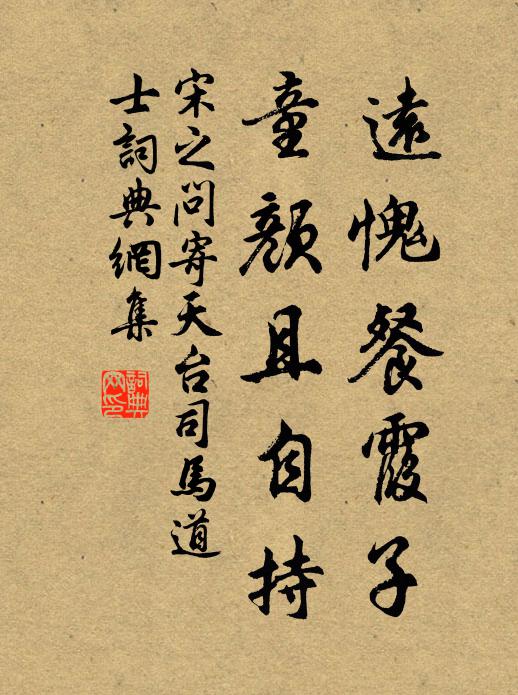 遠愧餐霞子
童顏且自持
宋之問寄天台司馬道
士詞典網集
詞典
网印